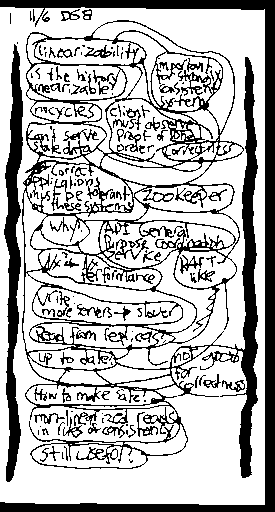 11/6 DS8
linearizability
is the history
linearizable?
important
for strongly
consistent
systems
no cycles
can't serve
stale data
Client
must observe
proof of total
order
correctness
correct
applications
must be tolerant
of these systems
zookeeper
why?
API General
Purpose Coordination
service
performance
RAFT
like
Write
more servers → slower
Read from replicas?
up to date?
not good
for
correctness
How to make safe?
non-linearized reads
in lieu of consistency
still useful?